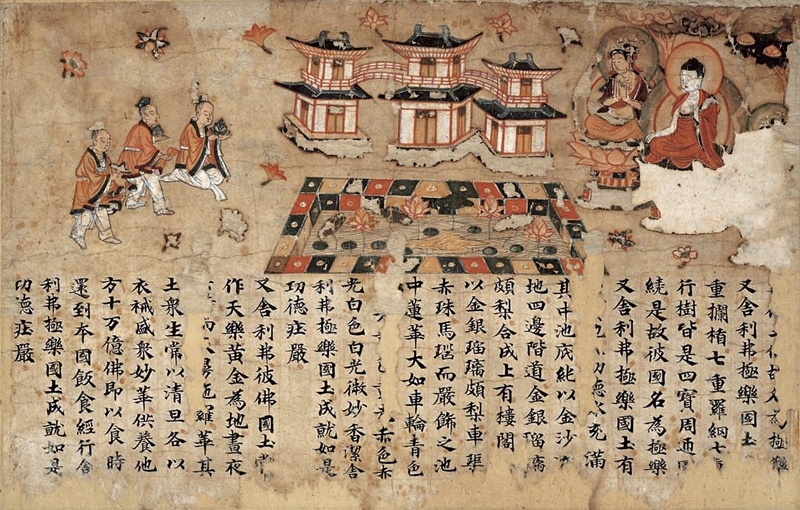 極樂
又舍利弗極樂國土
重攔楯七重羅網七
行樹皆是四寶周迊
繞是故彼國名為極樂
又舍利弗極樂國土有
功德 充滿
其中池底純以金沙
地四邊階道金銀瑠璃
頗梨合成上有樓閣
以金銀瑠璃頗梨車璖
赤珠馬瑙而嚴飾之池
中蓮華大如車輪青色
赤色赤
光白色白光微妙香潔舍
利弗極樂國土成就如是
功德莊嚴
又舍利弗彼佛國土常
作天樂黃金為地晝夜
而 羅華其
土衆生常以清旦各以
衣裓盛衆妙華供養他
方十万億佛即以食時
還到本國飯食經行舍
利弗極樂國土成就如是
功德莊嚴